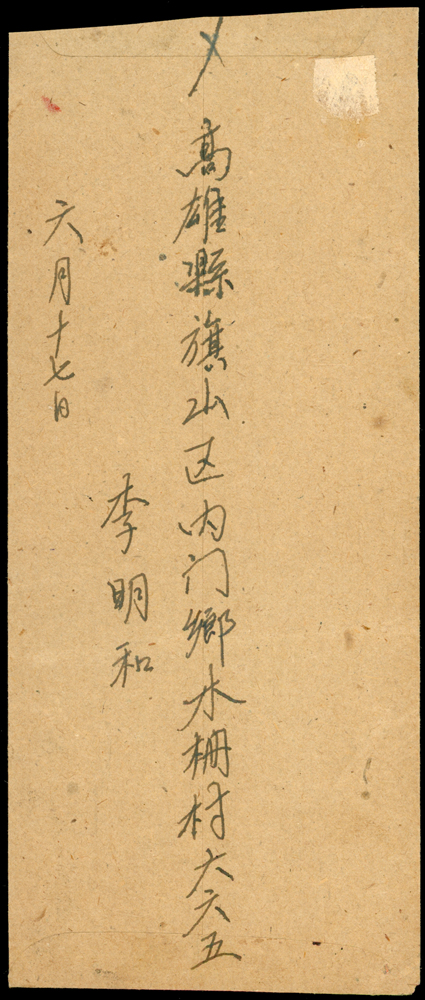 〆
高雄縣旗山区内门鄉木柵村六六五
李明和
六月十七日